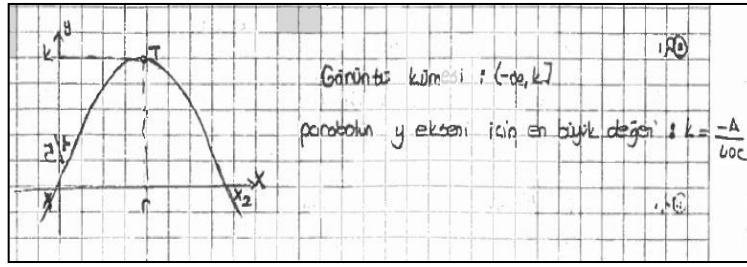 y
k
T
Görüntü kümesi : (-∞, k]
parabolün y ekseni için en büyük değeri : k = -Δ
x
x2
r